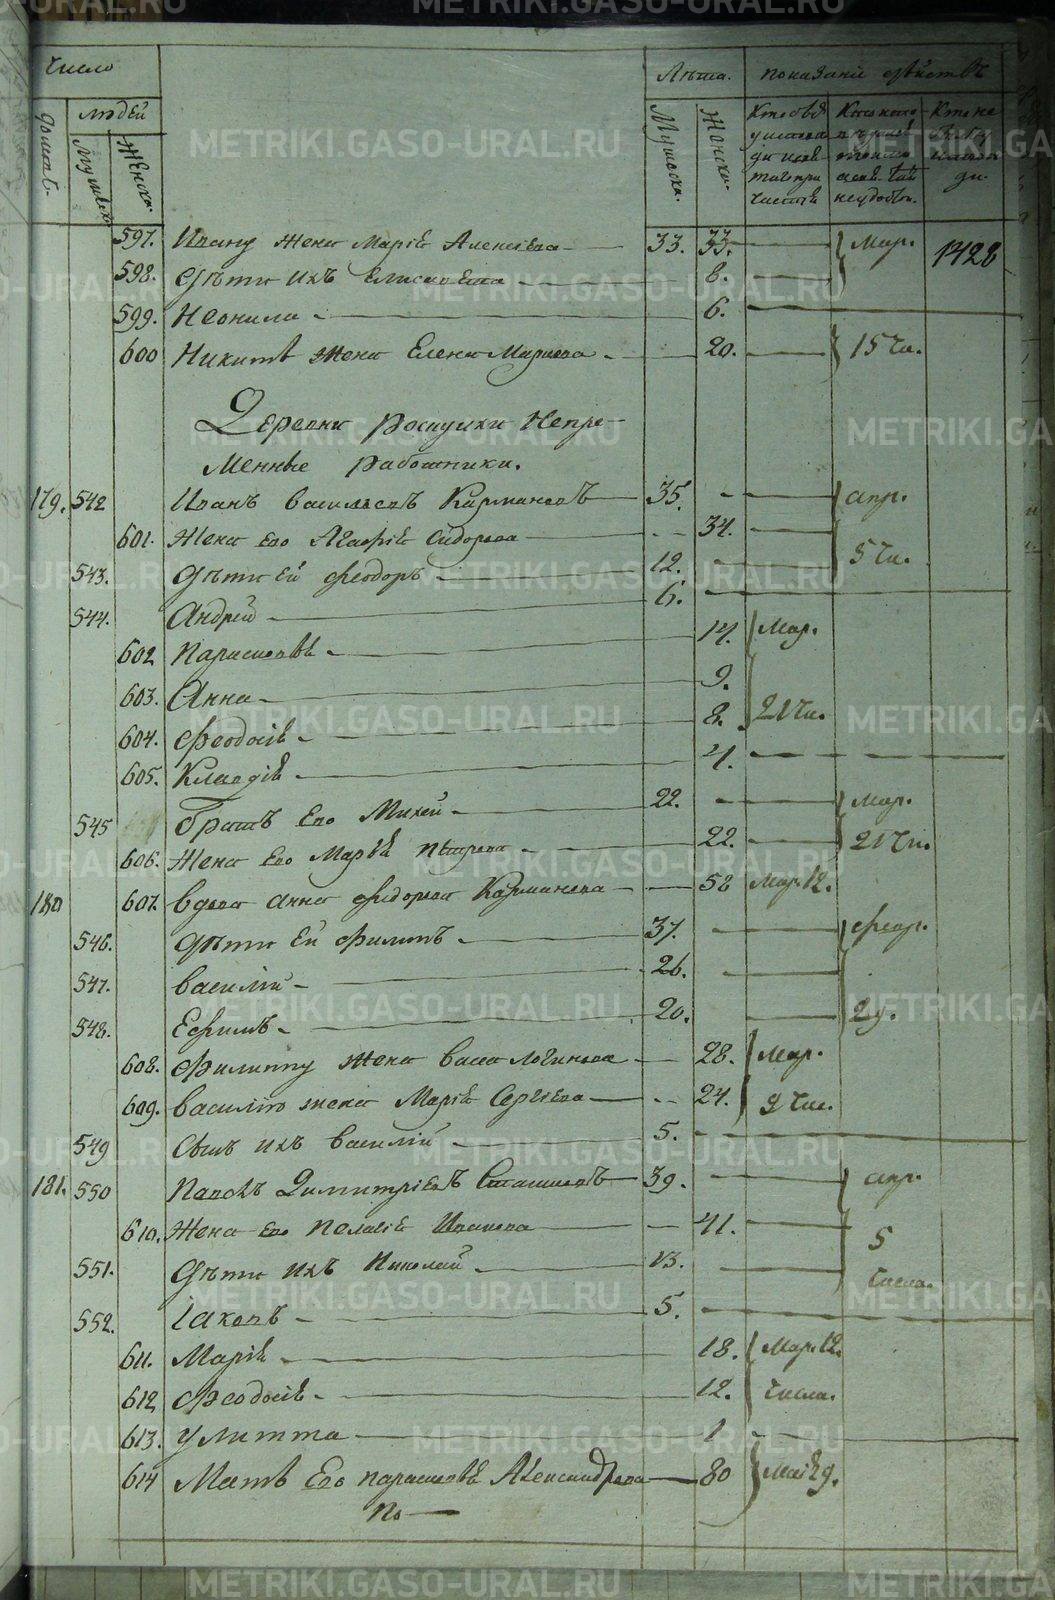 METRIKI.GASO-URAL.RU
Число
Лѣта.
показаніи дѣйствъ
домов.
людей
Мужеска.
Женска.
Мужеска.
Женска.
597. Ивану жена Марія Алексѣева 33. 33. Мар.
1428
598. Дѣти ихъ Елисавета 8.
599. Неонила 6.
600 Никитѣ жена Елена Маркова 20. 15 чи.
Деревни Роспушки Непре-
менные работники.
179. 542 Иванъ Васильевъ Кармановъ 35. апр.
601. Жена его Агафія Сидорова 34.
5 чи.
543. Дѣти ей Феодоръ 12.
544. Андрей 6.
602 Параскева 14. Мар.
603. Анна 9.
21 чи.
604. Феодосія 8.
605. Клавдія 4.
545 Братъ его Михей 22. мар.
606. Жена его Марья Петрова 22. 21 чи.
180 607. Вдова Анна Фёдорова Карманова 58 Мар. 12.
546. Дѣти ей Филипъ 37. февр.
547. Василій 26.
548. Ефимъ 20. 29.
608. Филиппу жена Васса Логинова 28. Мар.
609. Василію жена Марія Сергѣева 24. 9 чис.
549 Сынъ ихъ Василій 5.
181. 550 Павелъ Димитріевъ 39. апр.
610. Жена его Пелагія Иванова 41.
5
551. Дѣти ихъ Николай 13.
числа.
552. Іаковъ 5.
611. Марія 18. Мар. 12.
612 Феодосія 12. числа.
613. Улитта 1
614 Мать его Параскева Александрова 80 Маія 9.
По